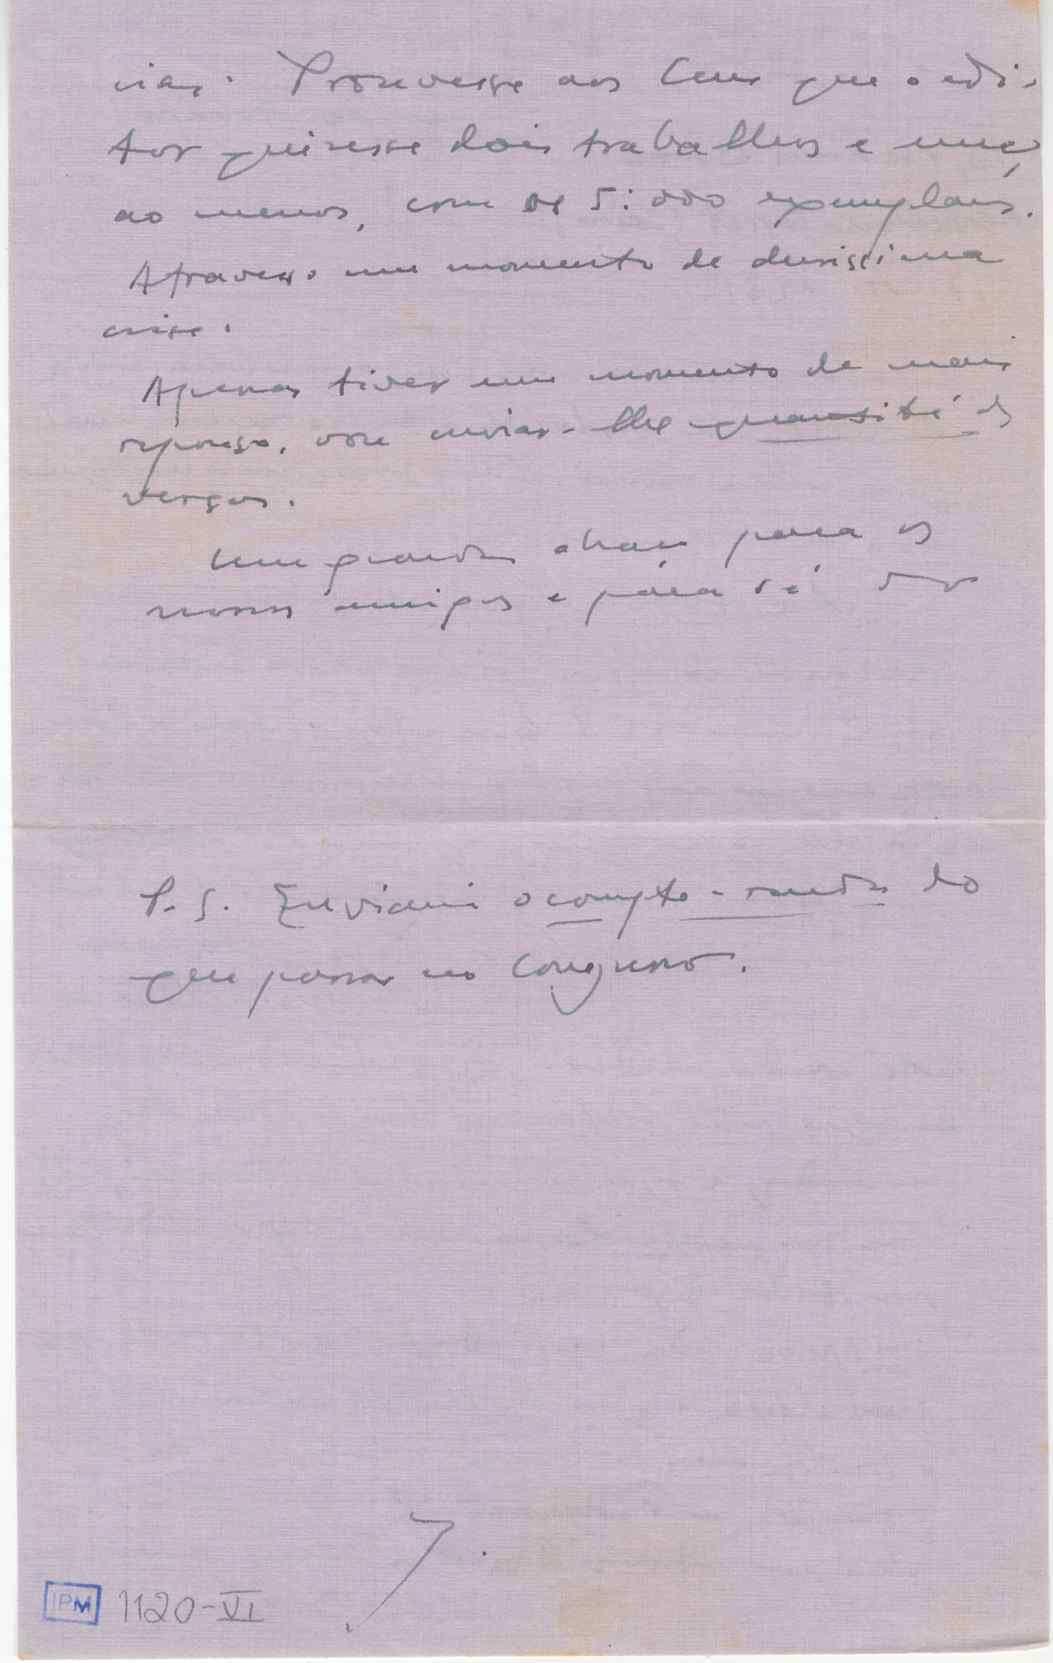 vias. Prouvesse aos Ceus que o edi-
tor quizesse dois trabalhos e um,
ao menos, com os 5:000 exemplares.
Atravesso um momento de durissima
crise.
Apenas tiver um momento de mais
repouso, vou enviar-lhe quantité de
versos.
Um grande abraço para os
nossos amigos e para si do
P. S. Enviarei o compte-rendu do
que passar no Congresso.
7.
IPM 1120-VI